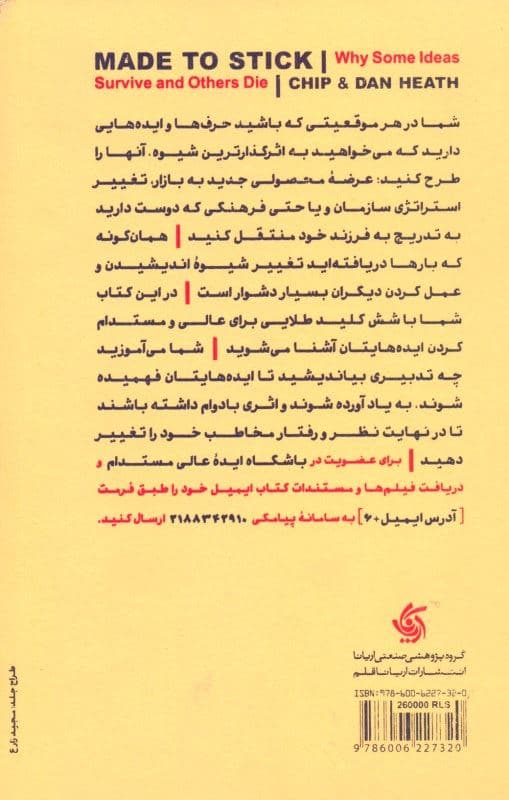 MADE TO STICK | Why Some Ideas
Survive and Others Die | CHIP & DAN HEATH
شما در هر موقعیتی که باشید حرف‌ها و ایده‌هایی
دارید که می‌خواهید به اثرگذارترین شیوه، آنها را
طرح کنید: عرضهٔ محصولی جدید به بازار، تغییر
استراتژی سازمان و یا حتی فرهنگی که دوست دارید
به تدریج به فرزند خود منتقل کنید | همان‌گونه
که بارها دریافته‌اید تغییر شیوهٔ اندیشیدن و
عمل کردن دیگران بسیار دشوار است | در این کتاب
شما با شش کلید طلایی برای عالی و مستدام
کردن ایده‌هایتان آشنا می‌شوید | شما می‌آموزید
چه تدبیری بیاندیشید تا ایده‌هایتان فهمیده
شوند، به یاد آورده شوند و اثری بادوام داشته باشند
تا در نهایت نظر و رفتار مخاطب خود را تغییر
دهید | برای عضویت در باشگاه ایدهٔ عالی مستدام و
دریافت فیلم‌ها و مستندات کتاب ایمیل خود را طبق فرمت
[آدرس ایمیل+۶] به سامانهٔ پیامکی ۲۱۸۸۳۴۲۹۱۰ ارسال کنید.
گروه پژوهشی صنعتی آریانا
انتشارات آریانا قلم
ISBN: 978-600-6227-32-0
260000 RLS
9 786006 227320
طراح جلد: مجید زارع